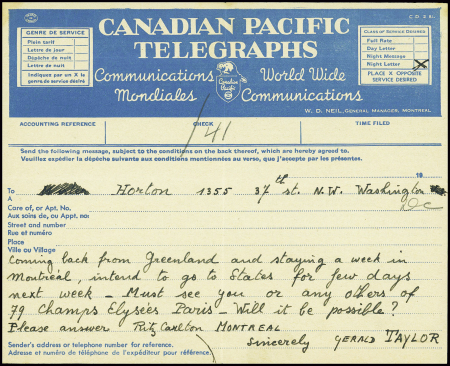 C.D. 2 B.L.
CANADIAN PACIFIC
TELEGRAPHS
Communications World Wide
Mondiales Communications
Canadian Pacific
W. D. NEIL, GENERAL MANAGER, MONTREAL
GENRE DE SERVICE
Plein tarif
Lettre de jour
Dépêche de nuit
Lettre de nuit
Indiquez par un X le
genre de service désiré
CLASS OF SERVICE DESIRED
Full Rate
Day Letter
Night Message
Night Letter X
PLACE X OPPOSITE
SERVICE DESIRED
ACCOUNTING REFERENCE CHECK TIME FILED
41
Send the following message, subject to the conditions on the back thereof, which are hereby agreed to.
Veuillez expédier la dépêche suivante aux conditions mentionnées au verso, que j'accepte par les présentes.
19
To Horton 1355 37th st. N.W. Washington
A DC
Care of, or Apt. No.
Aux soins de, ou Appt. no:
Street and number
Rue et numéro
Place
Ville ou Village
Coming back from Greenland and staying a week in
Montréal, intend to go to States for few days
next week - Must see you or any others of
79 Champs Elysées Paris - Will it be possible?
Please answer Ritz Carlton MONTREAL
Sincerely GERALD TAYLOR
Sender's address or telephone number for reference.
Adresse et numéro de téléphone de l'expéditeur pour référence.